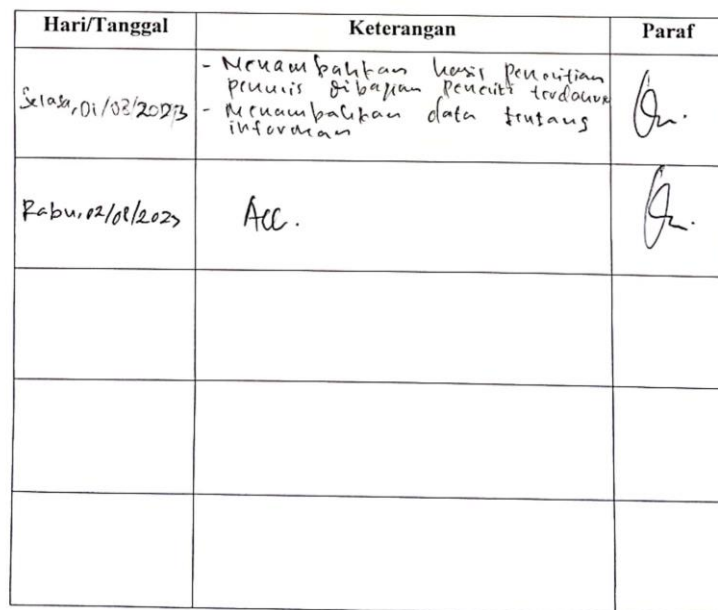 Hari/Tanggal Keterangan Paraf
- Menambahkan hasil penelitian
penulis dibagian peneliti terdahulu
Selasa, 01/08/2023 - Menambahkan data tentang
informan
Rabu, 02/08/2023 Acc.